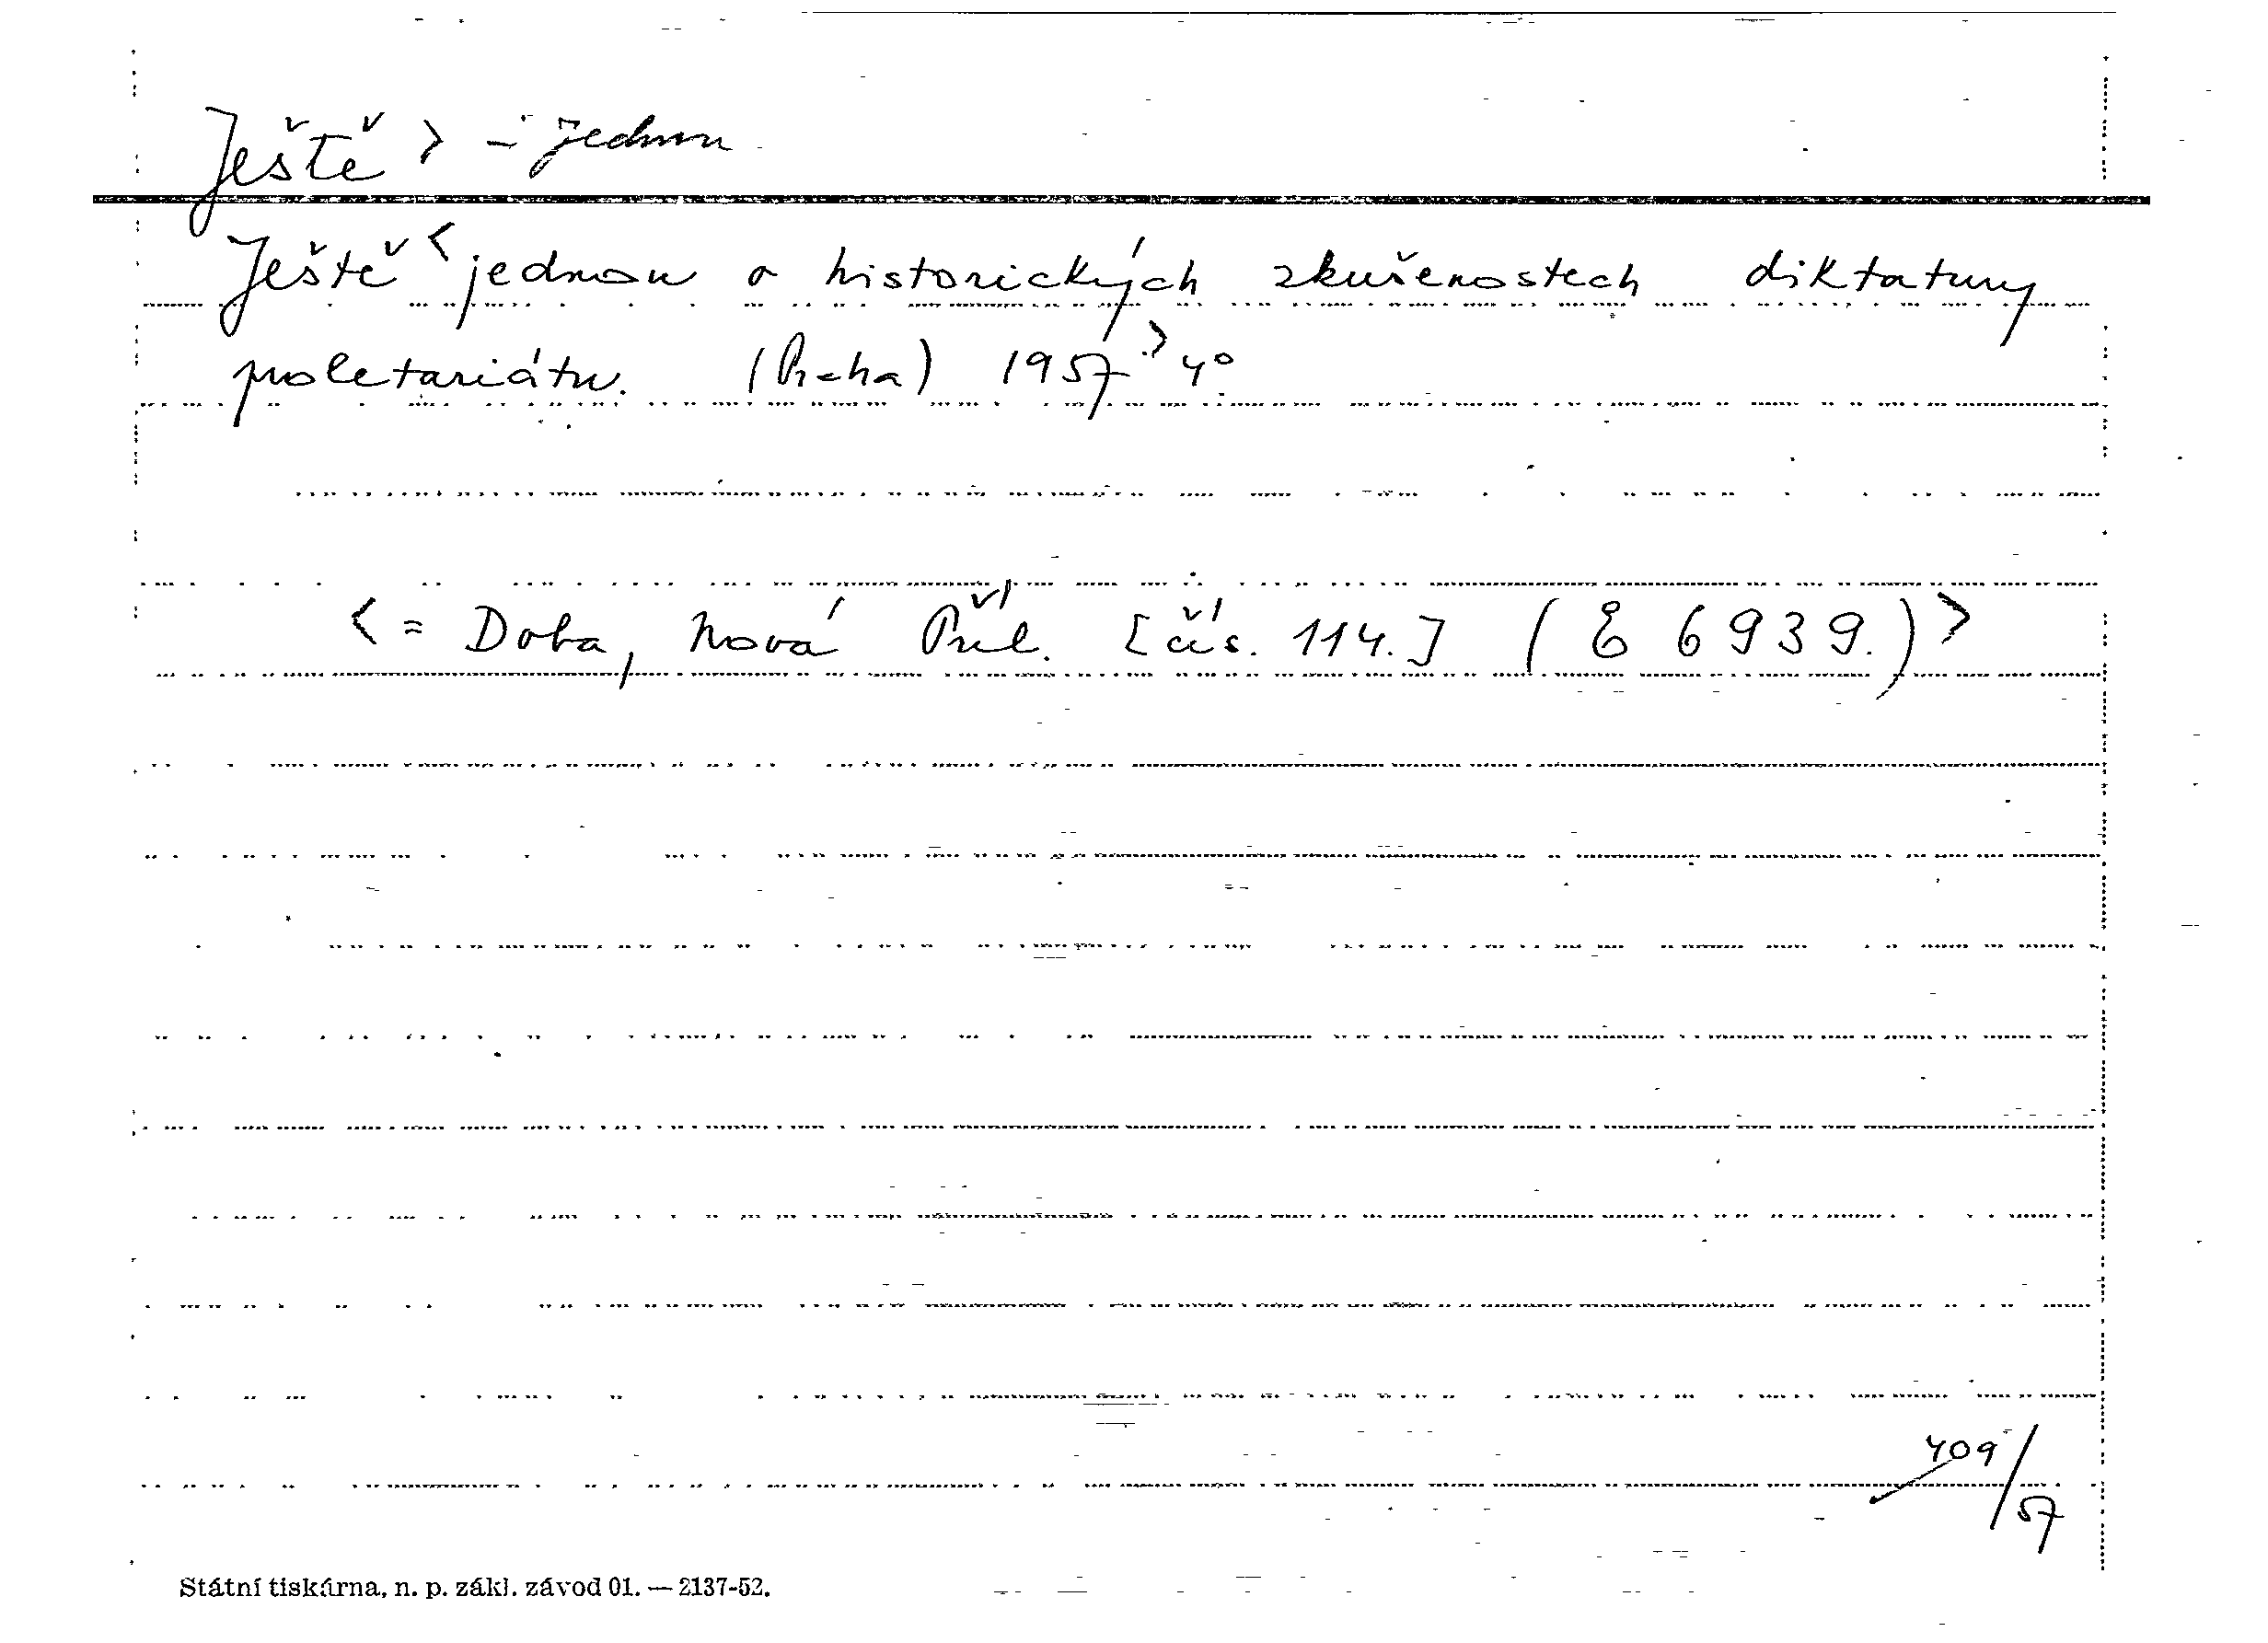 Ještě > - jednou
Ještě < jednou o historických zkušenostech diktatury
proletariátu. (Praha) 1957 > 4°
< = Doba, Nová Příl. [čís. 114.] (E 6939.) >
409/57
Státní tiskárna, n. p. zákl. závod 01. — 2137-52.